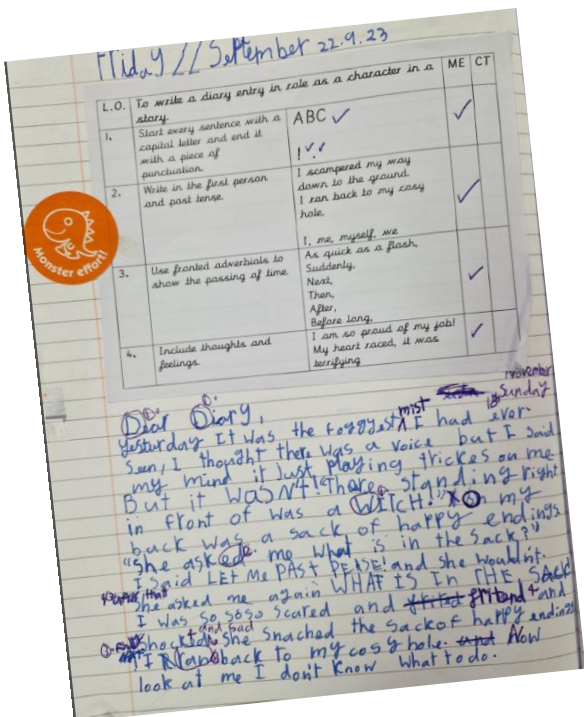 Friday // September 22.9.23
L.O. To write a diary entry in role as a character in a story. ME CT
1. Start every sentence with a capital letter and end it with a piece of punctuation.
ABC ✓
2. Write in the first person and past tense.
I scampered my way down to the ground.
I ran back to my cosy hole.
I, me, myself, we
3. Use fronted adverbials to show the passing of time.
As quick as a flash,
Suddenly,
Next,
Then,
After,
Before long,
4. Include thoughts and feelings.
I am so proud of my job!
My heart raced, it was terrifying
Monster effort!
November
18 Sunday
Dear Diary,
Yesterday It was the foggyest mist I had ever
seen, I thought there was a voice but I said
my mind it Just playing trickes on me
But it WASNT! There standing right
in front of was a WITCH!" On my
back was a sack of happy endings
"She asked me what is in the sack?"
I said LET ME PAST PLEASE! and she wouldn't.
She asked me again WHAT IS IN THE SACK
I was so soso scared and fritend and
shockt and sad She snached the sack of happy endings
I Ran back to my cosy hole. and Now
look at me I don't know what to do.